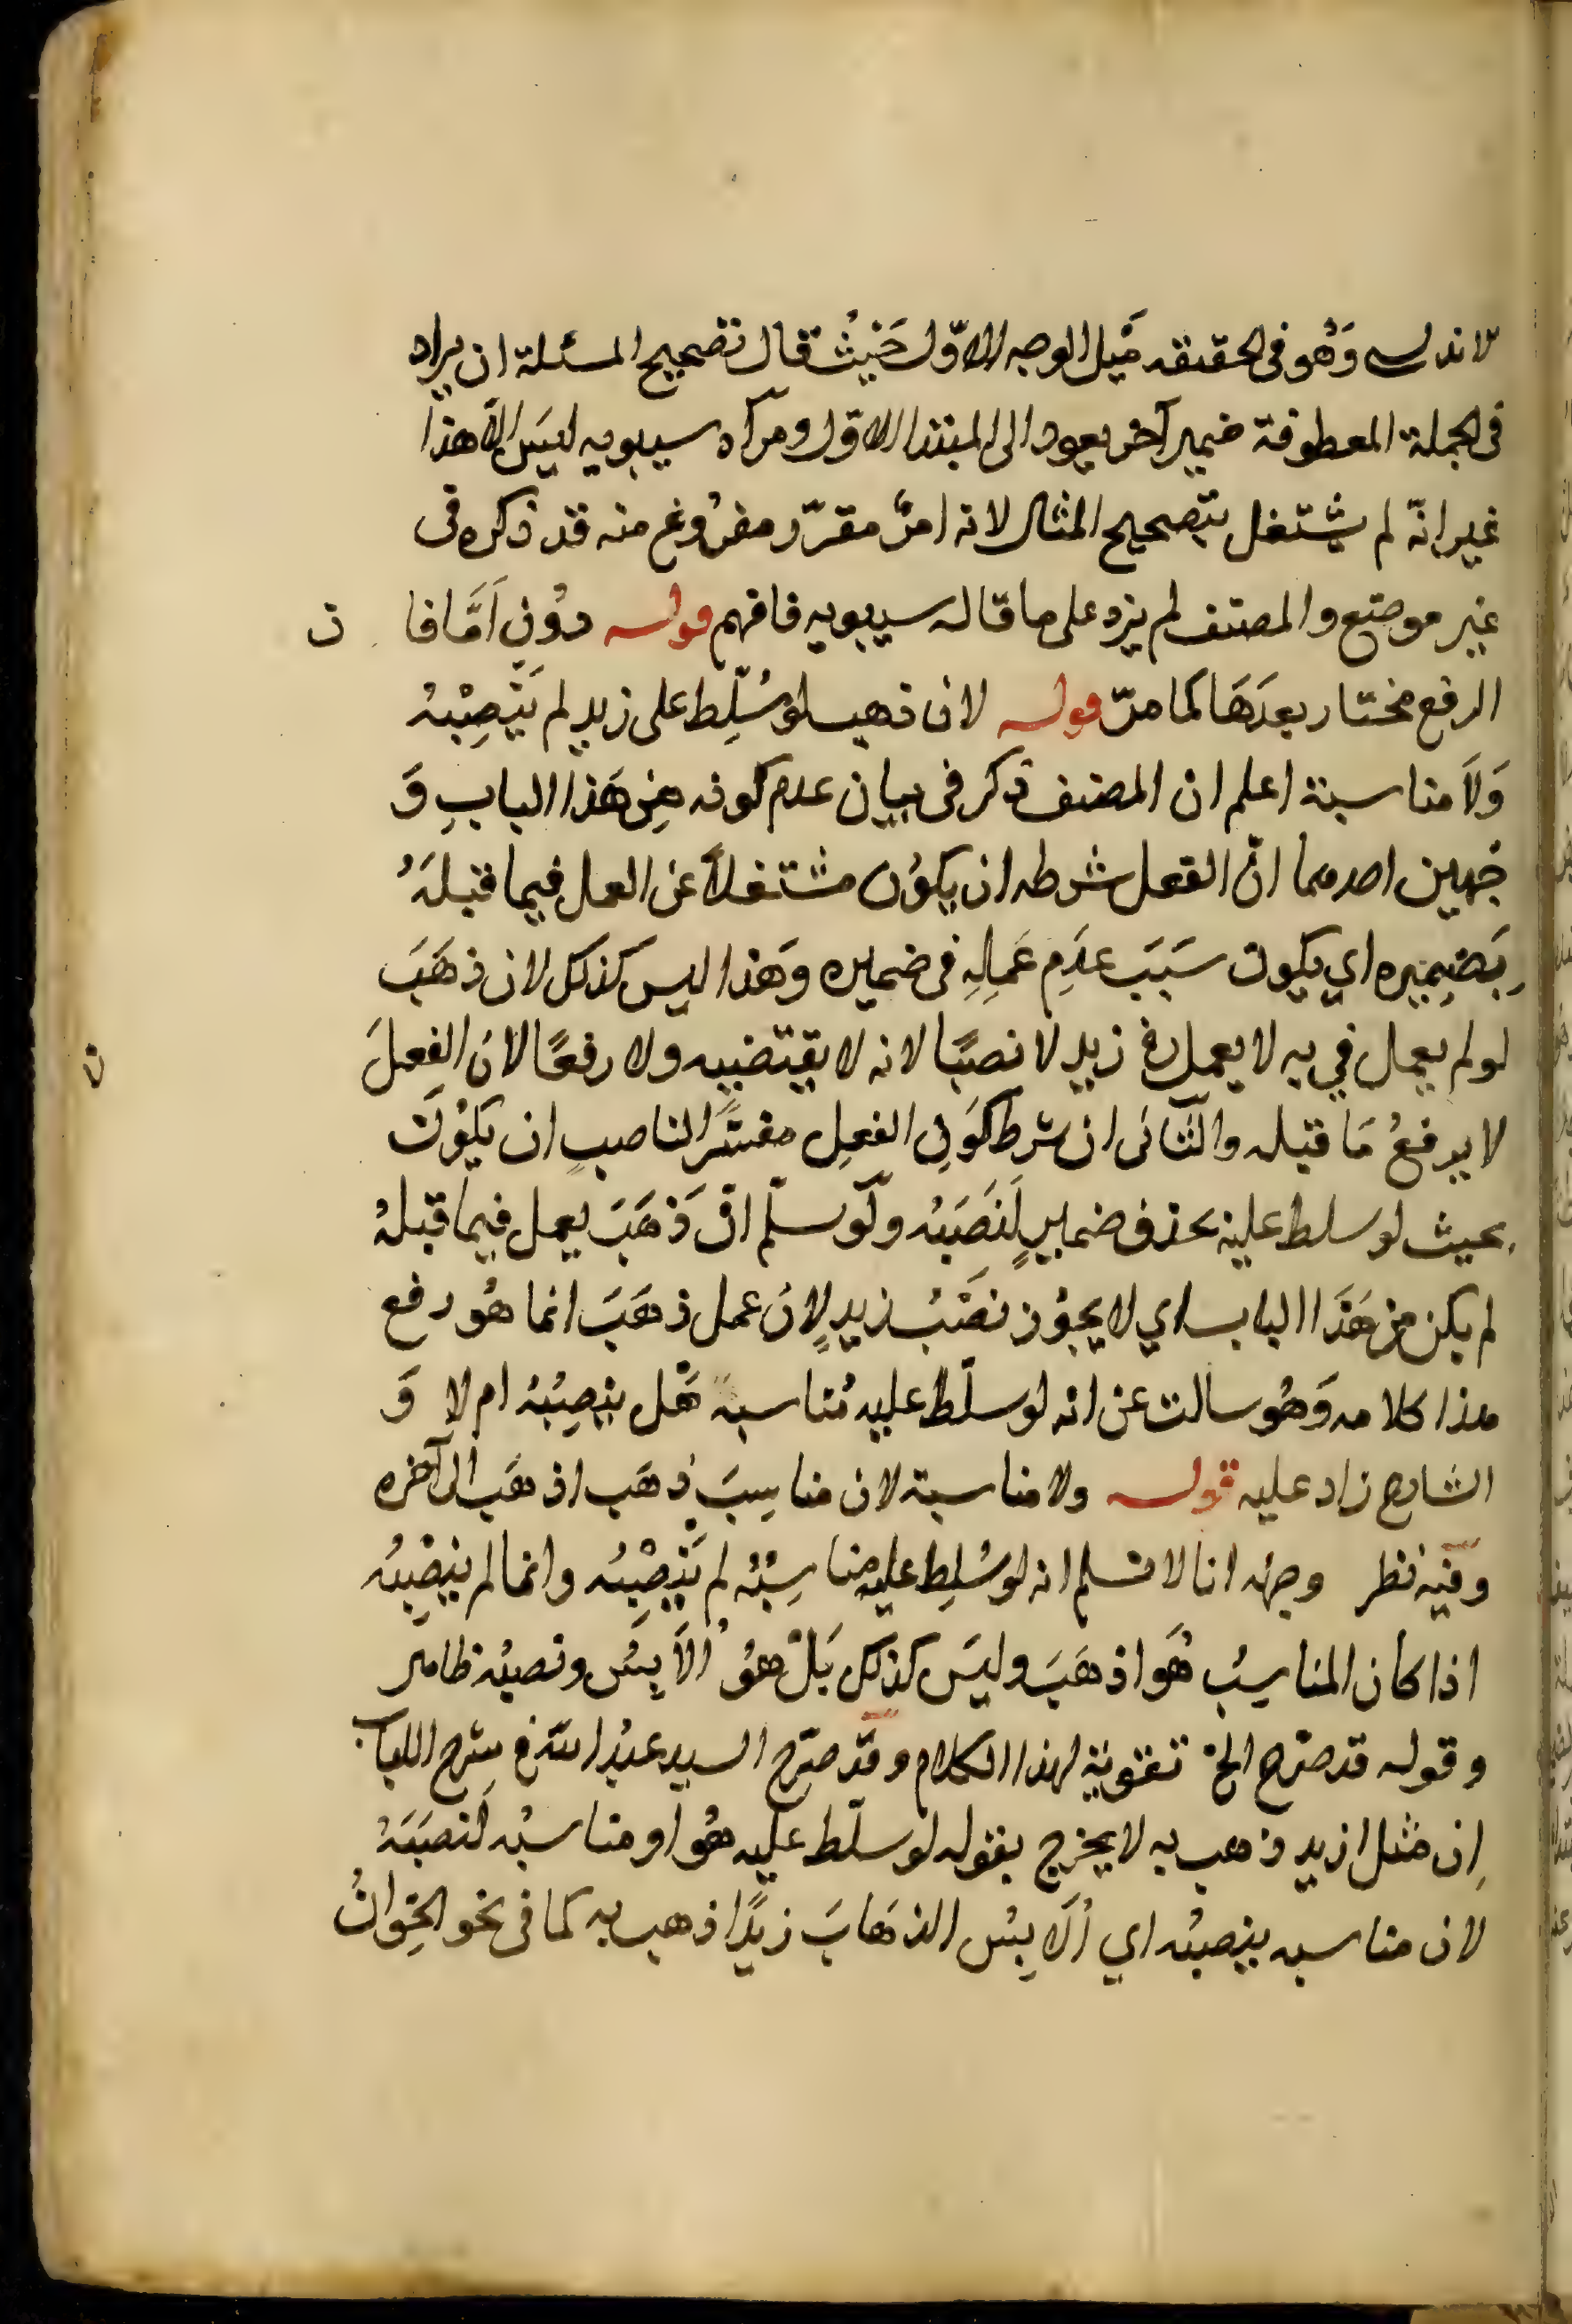 لاندلسي وَهُو فى الحقيقه مَيل الوجه الاوّل حَيثُ قال تصحيح المسئلة ان يراد
فى الجملة المعطوفة ضمير آخر يعود الى المبتدا الاوّل ومراد سيبويه ليسَ الّا هذا
غير انّه لم يشتغل بتصحيح المثال لانه امرٌ مقرّر مفرُوغ منه قد ذكره فى
غير موضع والمصنف لم يزد على ما قاله سيبويه فافهم قوله دوُنِ اَمَّا فا ن
الرفع مختار بعدَهَا كما مرّ قوله لان ذهب لو سُلِّط على زيدٍ لم يَنْصِبْهُ
وَلَا مناسبة اعلم ان المصنف ذكر فى بيان عدم كونه مِن هَذا البابِ وَ
جهين احدهما انّ الفعل شرطه ان يكوُن مشتغلاً عن العمل فيما قبلَهُ
بِضمِيره اي يكون سَبَبَ عدَمِ عَمِلِهِ فى ضميره وَهذا ليس كذلك لان ذهَبَ
لو لم يعمل في به لا يعمل فى زيد لا نصبًا لانه لا يقتضيه ولا رفعًا لانَ الفِعلَ
لا يرفعُ مَا قبله والثّانى ان شرط كوَنِ الفعلِ مفسَّرَ الناصبِ ان يكوُنَ
بحيث لو سلط عليه بحذف ضميرٍ لَنَصَبَه ولَو سلّم انّ ذَهَبَ يعمل فيما قبلهُ
لم يكن مِن هَذَا الباب اي لا يجوُز نصَبْ زيدٍ لِانَ عمل ذهَبَ انما هُو رفع
هذا كلامه وَهُو ساكت عن انه لو سلّط عليه مُناسبه هَل ينصِبُه ام لا وَ
الشارح زاد عليه قوله ولا مناسبة لان مناسِبَ ذهَب اذهَب الى آخره
وفيه نظر وجهه انا لا نسلم انه لو سُلِط عليه مناسِبُهُ لم يَنْصِبْهُ وانما لم ينصِبهُ
اذا كان المناسِبُ هُوَ اذهَبَ وليسَ كذلك بَلْ هوُ اُلَابِسُ ونصبُه ظاهر
وقوله قد صرّح الخ تقوية لهذا الكلام وقد صرّح السيد عبدُ الله فى شرح اللباب
اِن مثل ازيد ذهب به لا يخرج بقوله لو سلّط عليه هُو او مناسبُه لَنصَبَهُ
لان مناسبه ينصبُه اي اُلَابِسُ الذهَابَ زيدًا ذهب به كما فى نحو الخِوانُ
ن